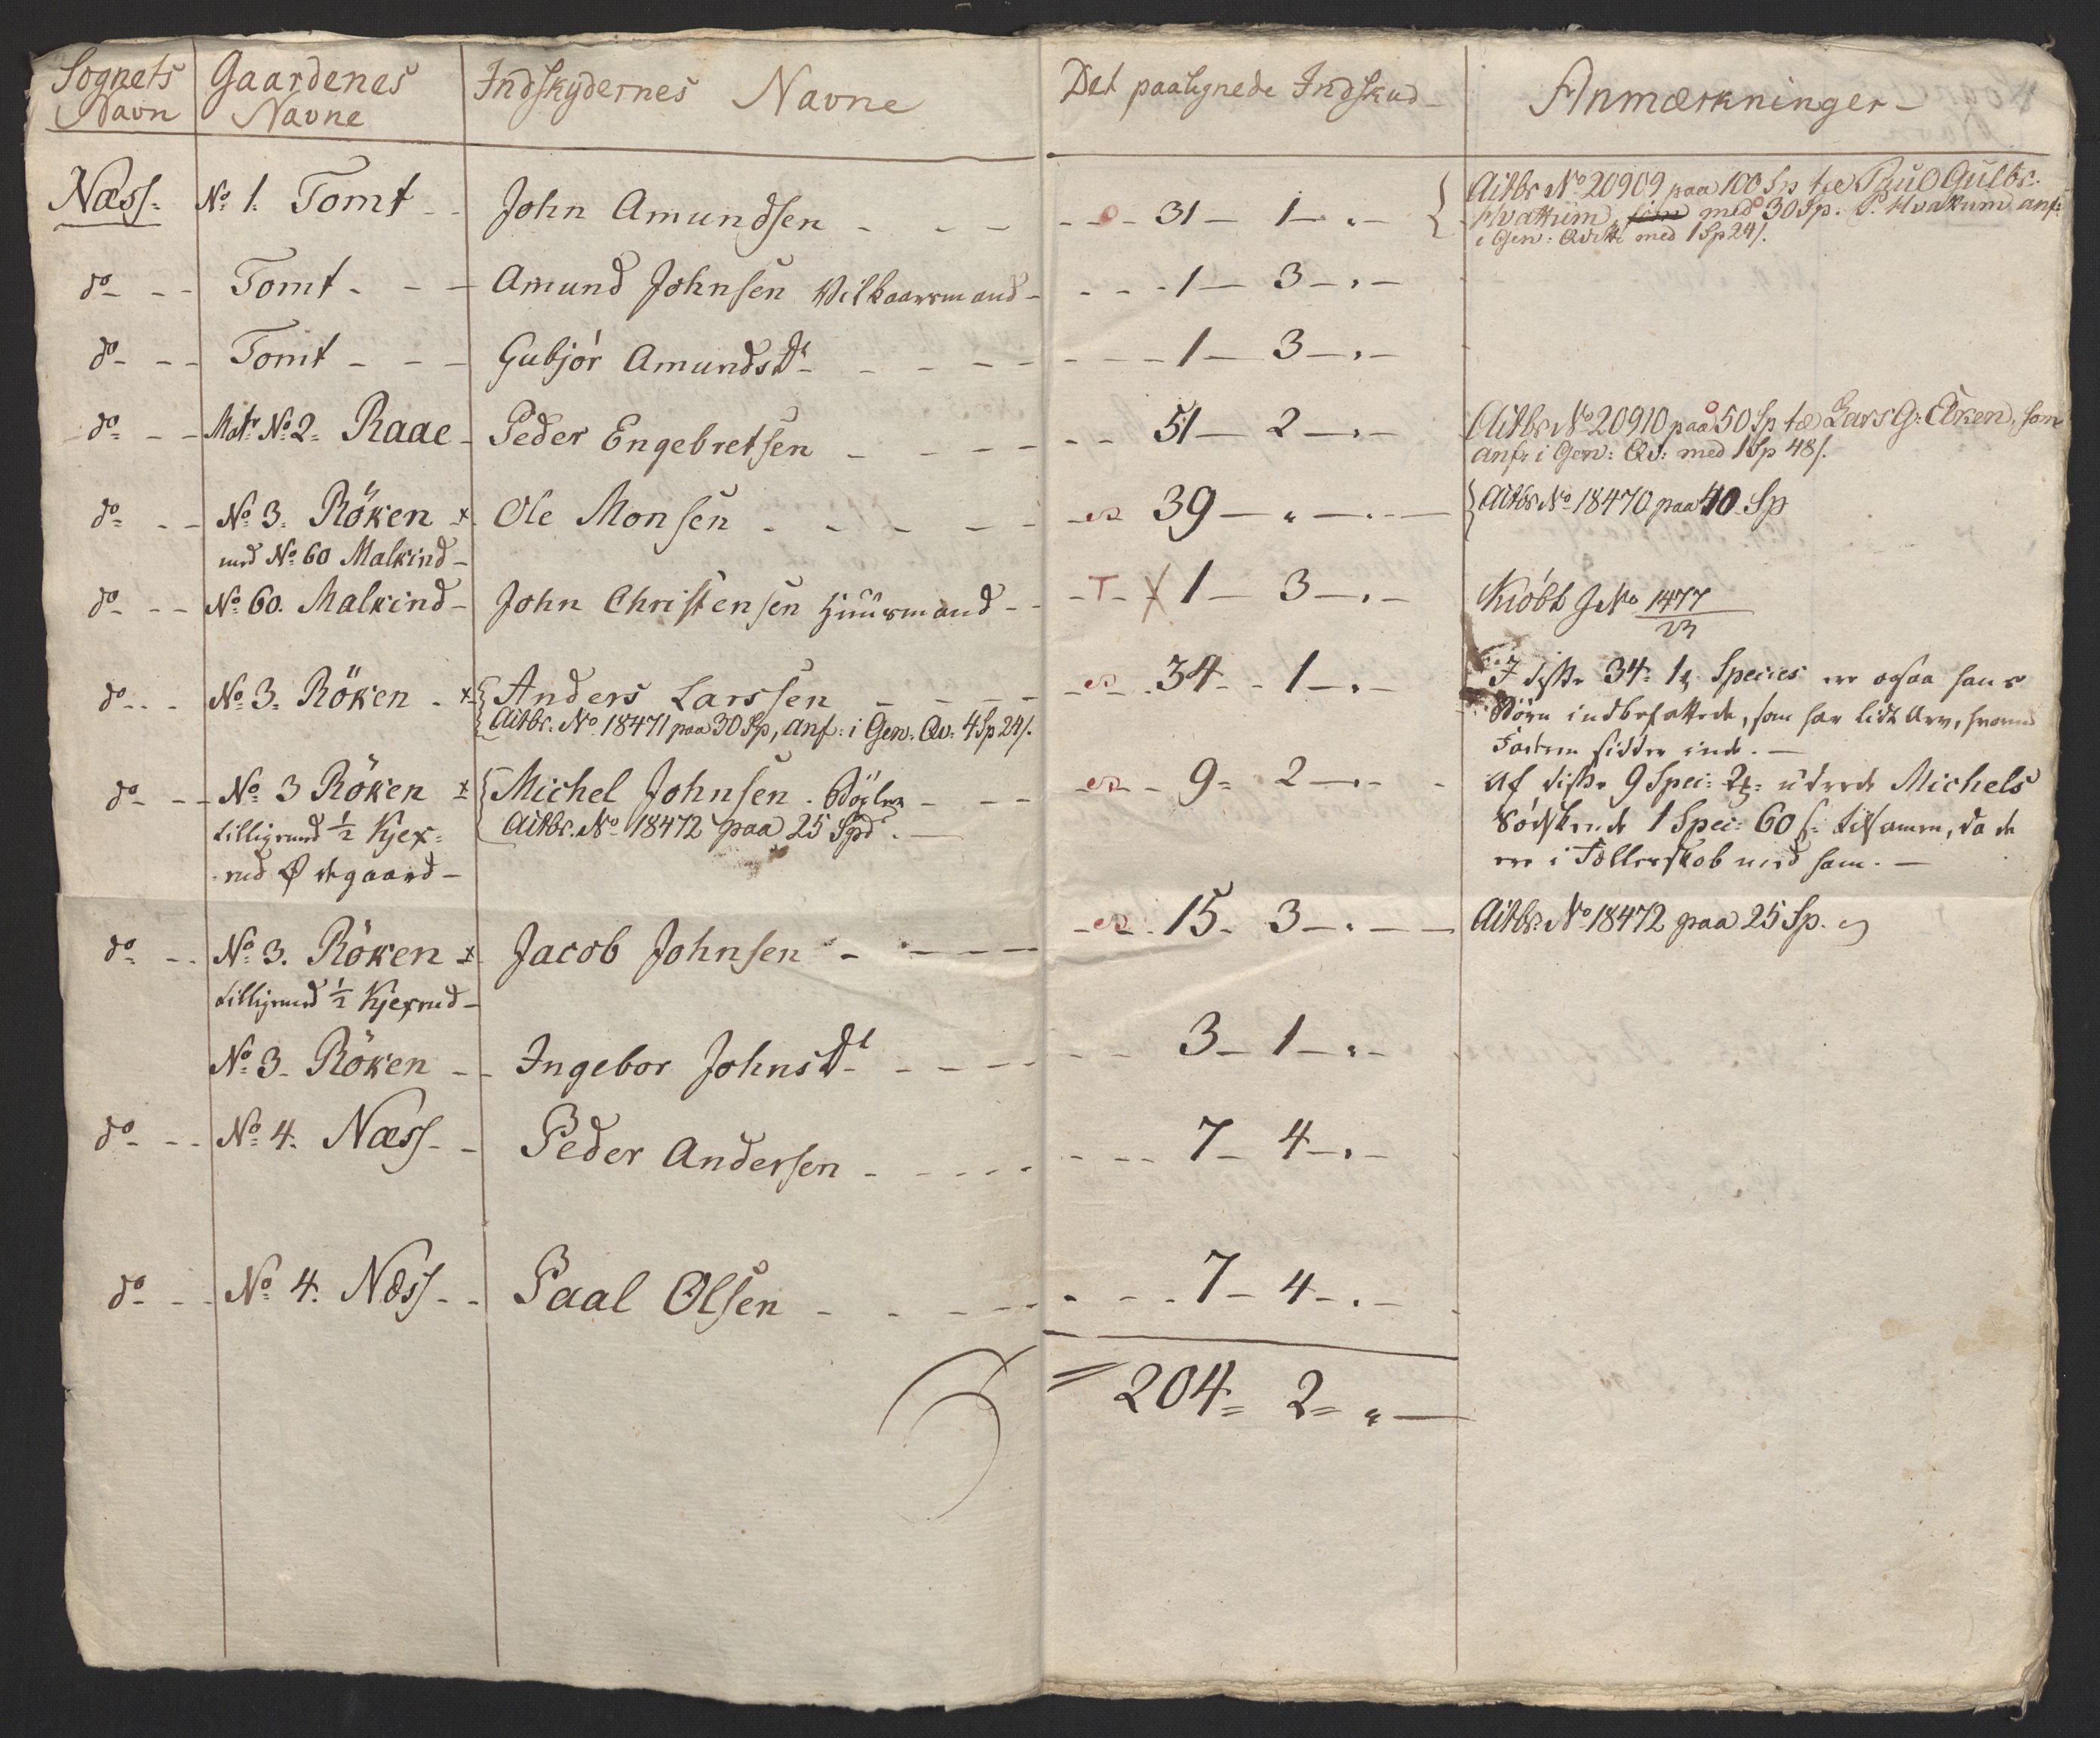 Sognets Navn | Gaardenes Navne | Indskydernes Navne | Det paalignede Indskud | Anmærkninger
Næss. | No 1. Tomt | John Amundsen | 31 — 1 — „ — | Actbr No 20909 paa 100 Sp til Poul Gulbr.
Hvattum, som med 30 Sp. P. Hvattum anf:
i Gen: Qvitt: med 1 Sp 24 s.
do | Tomt | Amund Johnsen Vilkaarsmand | 1 — 3 — „ —
do | Tomt | Gubjør Amundsdr | 1 — 3 — „ —
do | Matr No 2. Raae | Peder Engebretsen | 51 — 2 — „ — | Actbr No 20910 paa 50 Sp til Lars G: Æken, som
anf: i Gen: Qv: med 1 Sp 48 s.
do | No 3. Röken x | Ole Monsen | 39 — „ — „ — | Actbr No 18470 paa 40 Sp
med No 60 Malkind
do | No 60. Malkind | John Christensen Huusmand | T X 1 — 3 — „ — | Kiöbt J No 1477/23
do | No 3. Röken x | Anders Larssen | 34 — 1 — „ — | I disse 34: 1 Species er ogsaa hans
Actbr. No 18471 paa 30 Sp, anf: i Gen: Qv: 4 Sp 24 s.
Börn indbefattede, som har lidt Arv, hvormed
Faderen sidder inde. —
do | No 3 Röken x | Michel Johnsen | 9 = 2 — „ — | Af disse 9 Speci: 2 udrede Michels
tilligemed ½ Kjex=
Actbr. No 18472 paa 25 Spd.
Södskende 1 Spec: 60 s: tilsamen, da de
rud Ødegaard —
ere i Fællesskab med ham. —
do | No 3. Röken x | Jacob Johnsen | 15 — 3 — „ — | Actbr. No 18472 paa 25 Sp.
tilligemed ½ Kjexrud —
No 3. Röken | Ingebor Johnsdr | 3 — 1 — „ —
do | No 4. Næss | Peder Andersen | 7 — 4 — „ —
do | No 4. Næss | Paal Olsen | 7 — 4 — „ —
= 204 = 2 = „ —